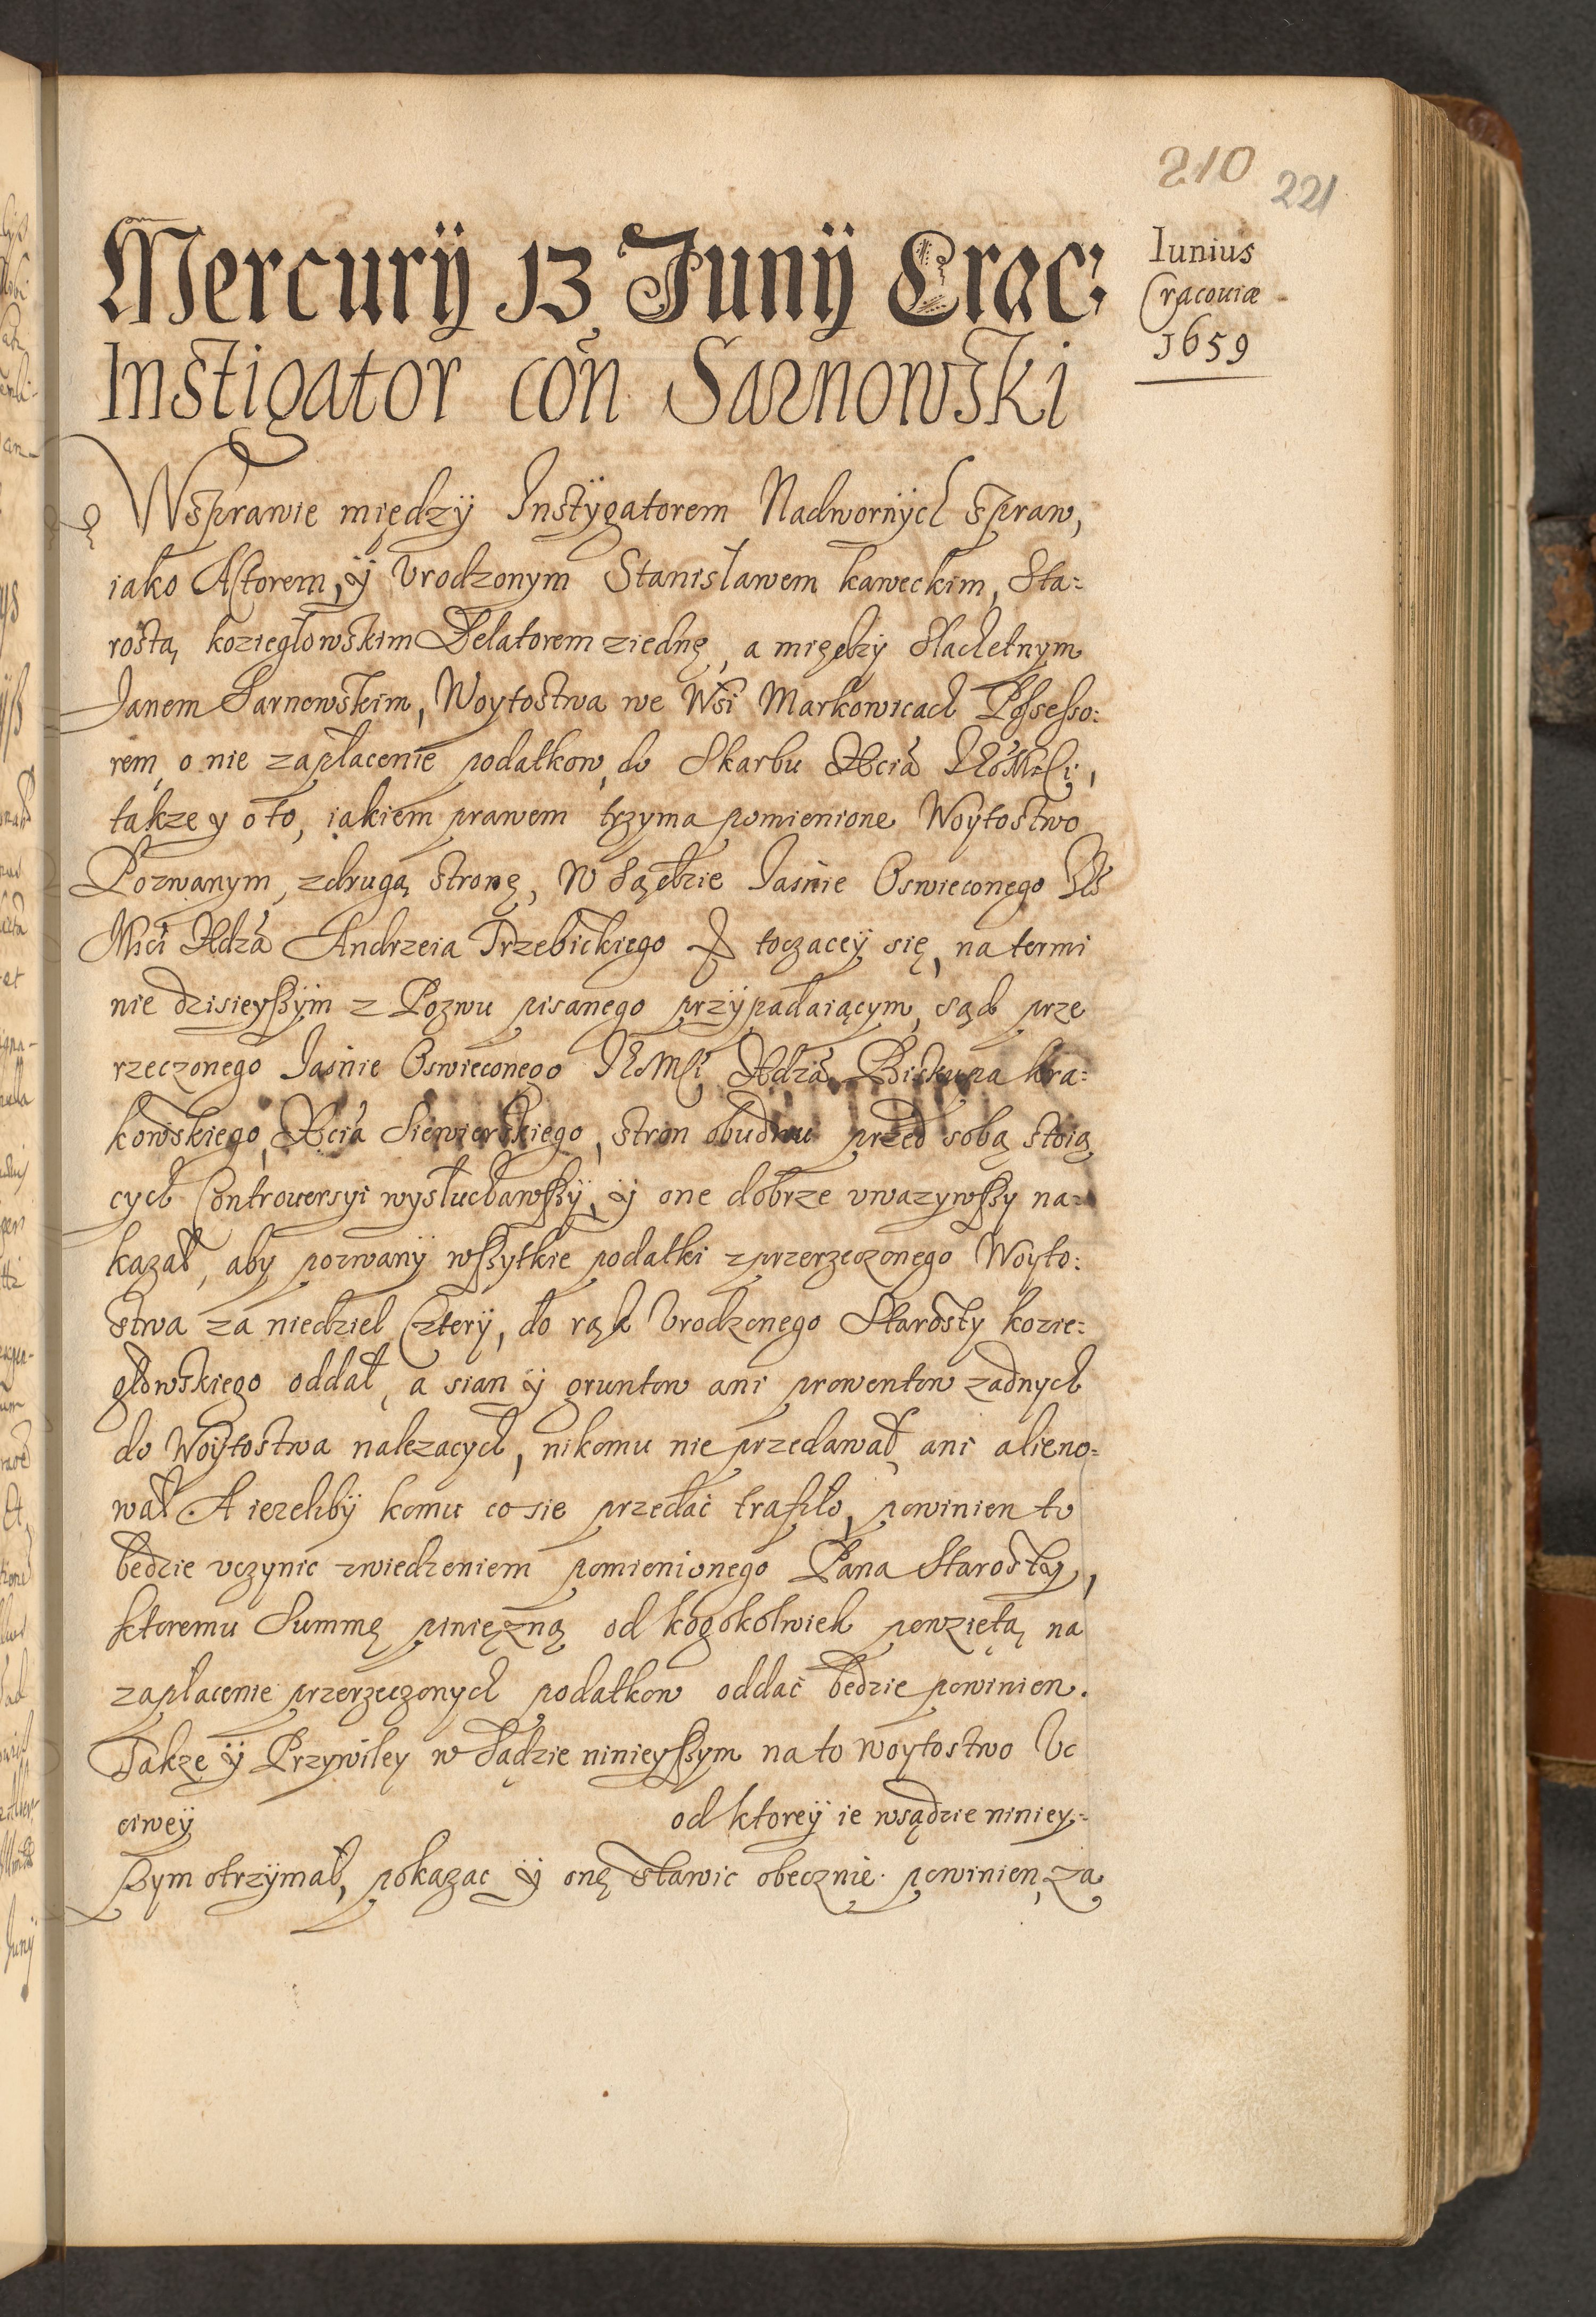 210
221
Mercurÿ 13 Junÿ Crac:
Iunius
Cracouiæ
1659
Instigator con Sarnowski
Wsprawie międzÿ Instÿgatorem Nadwornÿch spraw,
iako Actorem, ÿ Vrodzonym Stanisławem kaweckim, Sta=
rostą koziegłowskim Delatorem ziednę, a między Slachetnym
Janem Sarnowskim, Woytostwa we Wsi Markowicach Possesso:
rem, o nie zapłacenie podatkow, do Skarbu Xcia
takze y o to, iakiem prawem trzyma pomienione Woÿtostwo
Pozwanym, zdrugą stronę, W Sądzie Jasnie Oswieconego
Mici Xdza Andrzeia Trzebickiego toczaceÿ się, na termi
nie dzisieyßÿm z Pozwu pisanego przÿpadaiącym, sąd prze
rzeczonego Jasnie Oswieconego Xdza Biskupa kra=
kowskiego, Xcia Siewierskiego, stron obudwu przed sobą stoią
cych Controuersyi wysłuchawßÿ, ÿ one dobrze vwazywßy na=
kazał, aby pozwanÿ wßytkie podatki zprzerzeczonego Woyto:
stwa za niedziel Czterÿ, do rąk Vrodzonego Starosty kozie=
głowskiego oddał, a sian ÿ gruntow ani prowentow zadnych
do Woÿtostwa nalezacych, nikomu nie przedawał ani alieno=
wał. A iezelibÿ komu co sie przedać trafiło, powinien to
bedzie vczynic zwiedzeniem pomienionego Pana Starosty,
ktoremu Summę pinięzną od kogokolwiek powziętą na
zapłacenie przerzeczonych podatkow oddać bedzie powinien.
Takze ÿ Przywiley w Sądzie ninieyßym na to woytostwo Vc
ciweÿ od ktoreÿ ie wsądzie niniey=
ßym otrzÿmał, pokazac ÿ onę stawic obecznie powinien, za